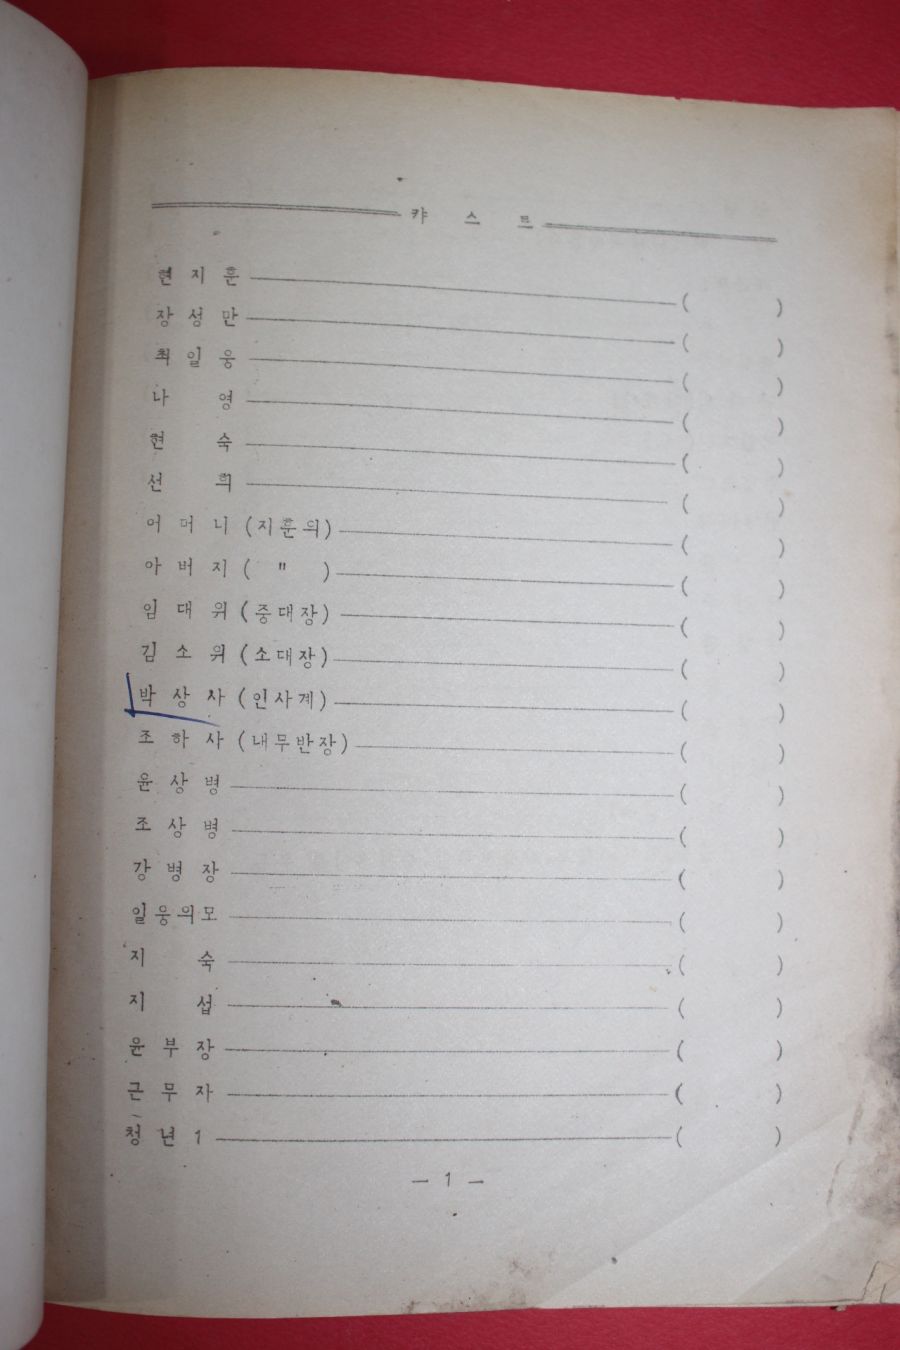 캬 스 트
현 지 훈 ( )
장 성 만 ( )
최 일 웅 ( )
나 영 ( )
현 숙 ( )
선 희 ( )
어 머 니 (지훈의) ( )
아 버 지 ( " ) ( )
임 대 위 (중대장) ( )
김 소 위 (소대장) ( )
박 상 사 (인사계) ( )
조 하 사 (내무반장) ( )
윤 상 병 ( )
조 상 병 ( )
강 병 장 ( )
일웅의모 ( )
지 숙 ( )
지 섭 ( )
윤 부 장 ( )
근 무 자 ( )
청 년 1 ( )
— 1 —